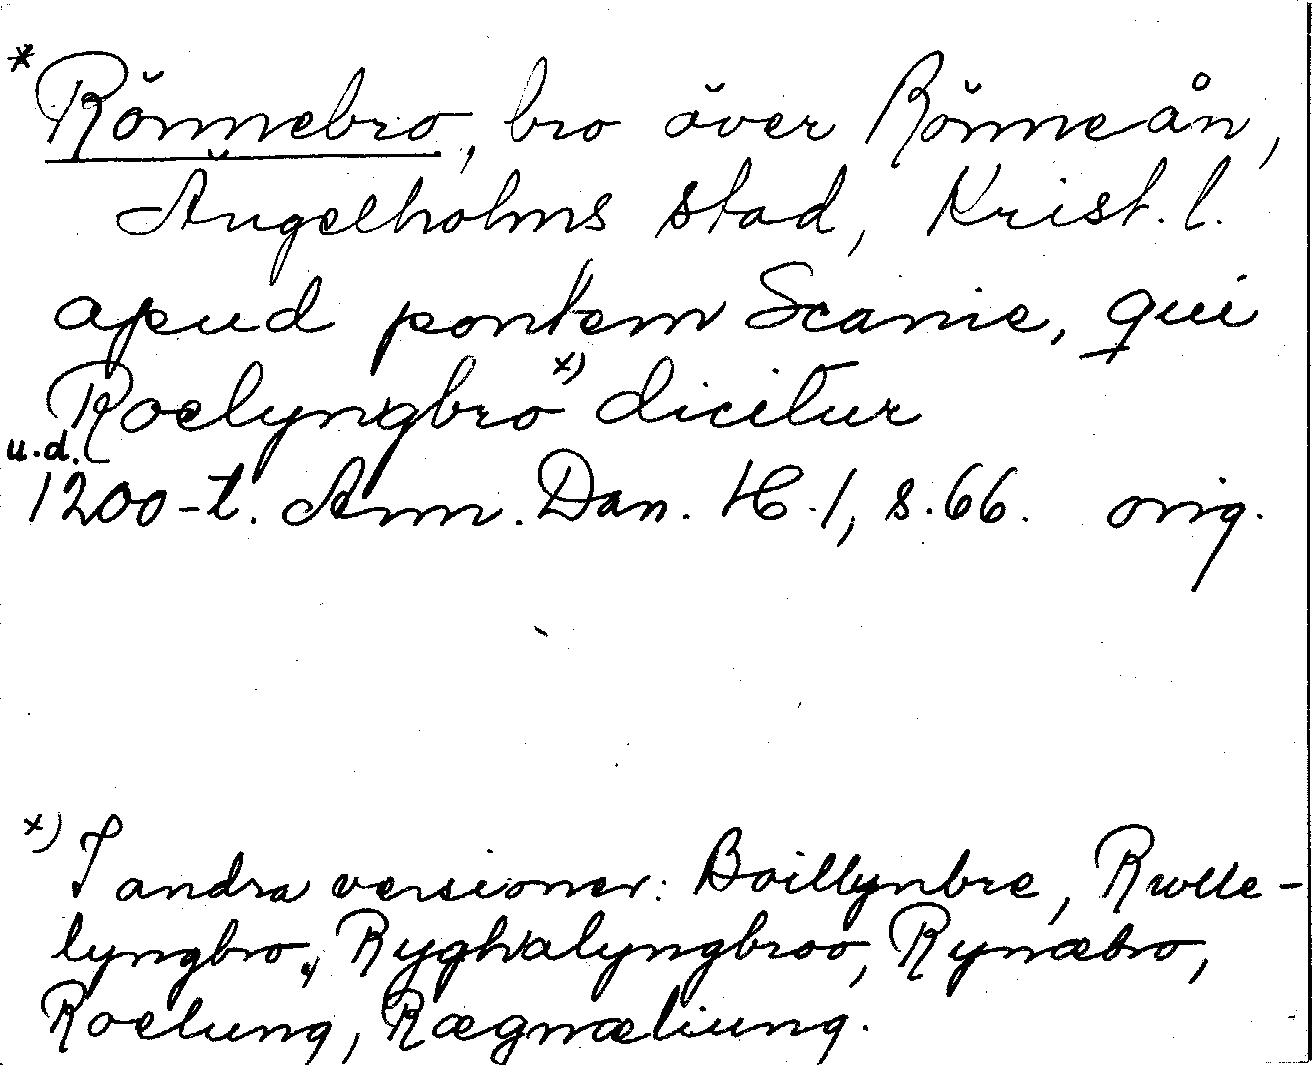 *Rönnebro, bro över Rönneån,
Ängelholms stad, Krist. l.
apud pontem Scanie, qui
Roelyngbro x) dicitur
u.d.
1200-t. Ann. Dan. H. 1, s. 66. orig.
x) I andra versioner: Boillynbre, Rwlle-
lyngbro, Ryghælyngbroo, Rynæbro,
Roelung, Rægnæliung.